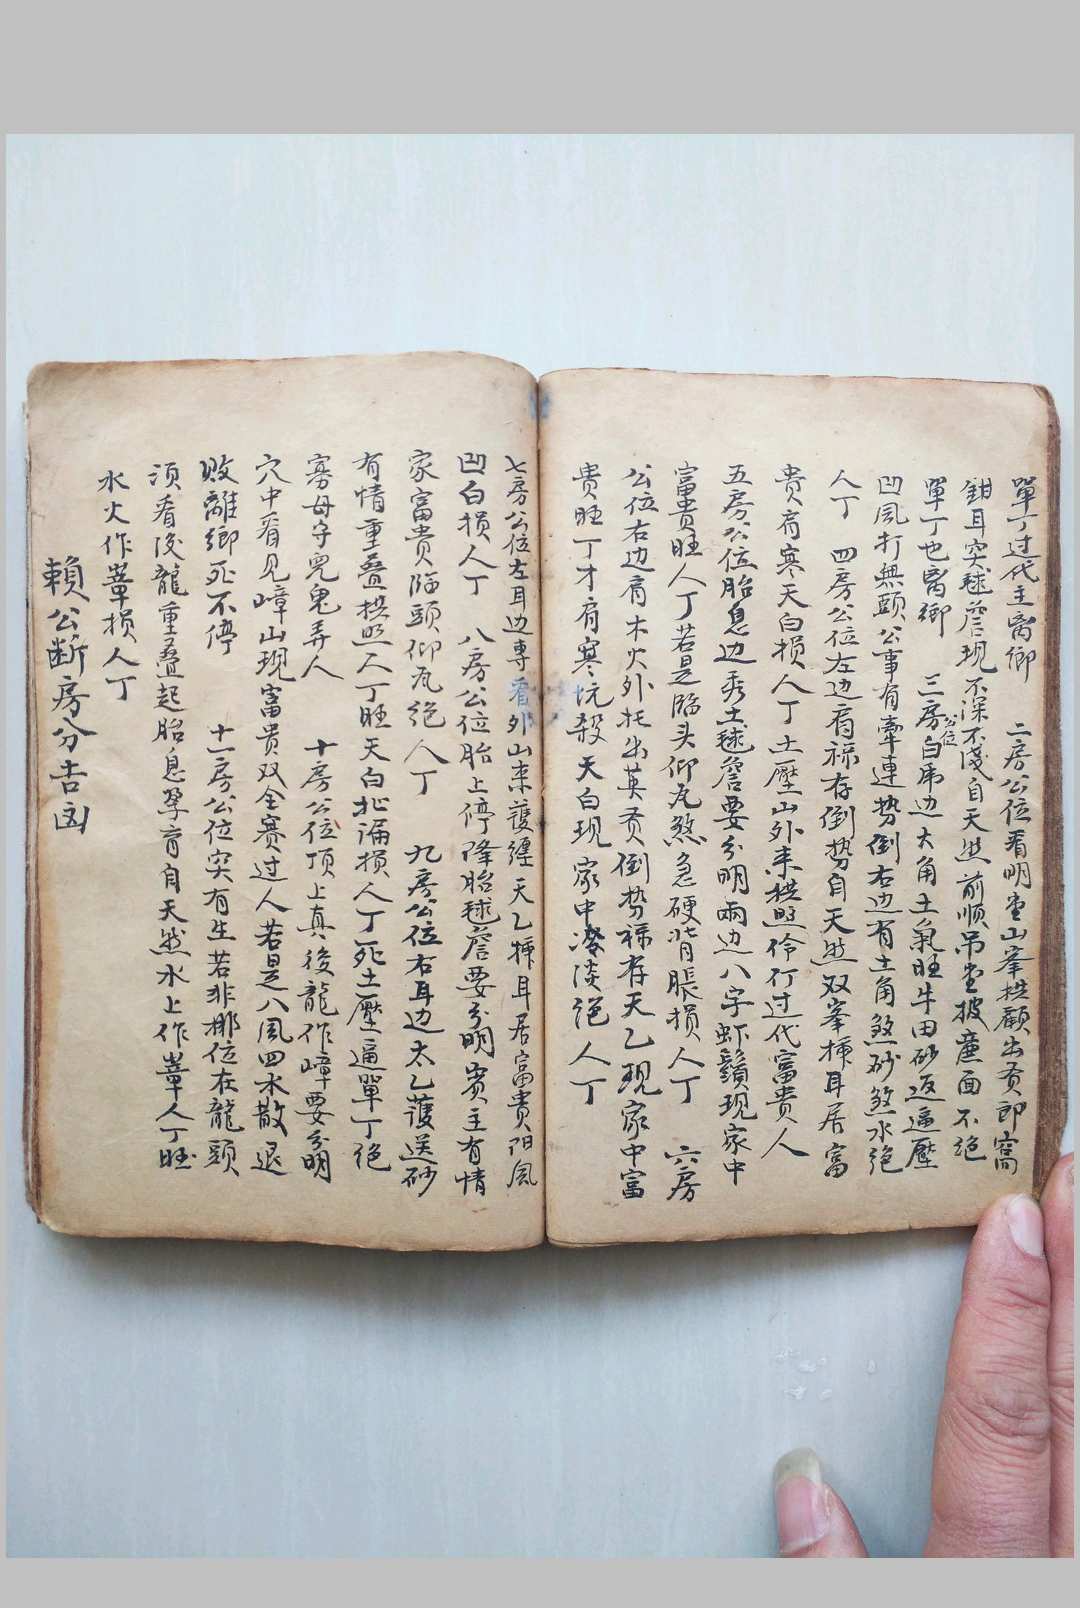 單丁过代主离鄉　二房公位看明堂山峯拱顧出贵郎窩
鉗耳突毬簷現不深不淺自天然前順吊堂披塵面不绝
單丁也离鄉　三房公位白虎边大角土氣旺牛田砂返逼壓
凹風打無頭公事有牽連势倒右边有土角煞砂煞水绝
人丁　四房公位左边肩禄存倒势自天然双峯揷耳居富
貴肩寒天白损人丁土壓山外来拱照伶仃过代富貴人
五房公位胎息边乘土毬簷要分明兩边八字虾鬚現家中
富貴旺人丁若是臨头仰瓦煞急硬背脹损人丁　六房
公位右边肩木火外托出英贡倒势禄存天乙現家中富
贵旺丁才肩寒坑殺天白現家中凌淡绝人丁
七房公位左耳边專看外山来護纏天乙揷耳居富貴阳風
凹白损人丁　八房公位胎上停降胎毬簷要分明賓主有情
家富貴臨頭仰瓦绝人丁　九房公位右耳边太乙護送砂
有情重叠拱照人丁旺天白扯漏损人丁死土壓逼單丁绝
寡母守兒鬼弄人　十房公位顶上真後龍作嶂要分明
穴中看见嶂山現富贵双全赛过人若是八風四水散退
败離鄉死不停　十一房公位突有生若非挪位在龍頭
须看後龍重叠起胎息孕育自天然水上作輋人丁旺
水火作輋损人丁
賴公断房分吉凶